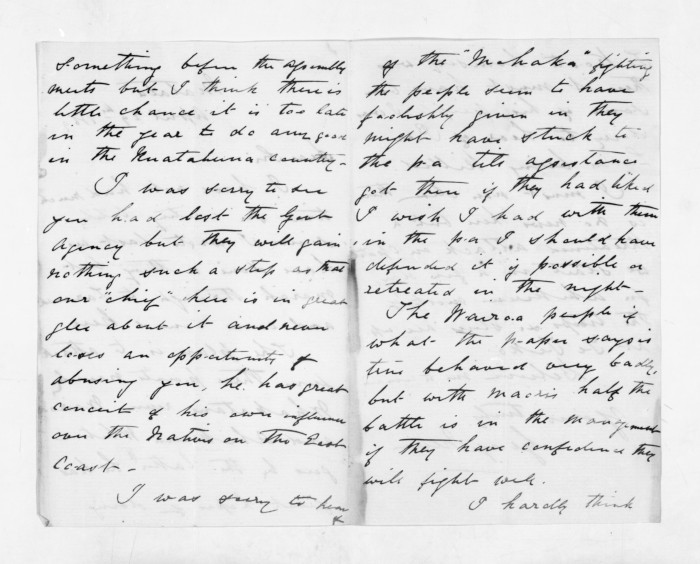 something before the Assembly
meets but I think there is
little chance it is too late
in the year to do any good
in the Ruatahuna country -
I was sorry to see
you had lost the Govt
Agency but they will gain
nothing such a step as that
our "chief" here is in great
glee about it and never
loses an opportunity of
abusing you, he has great
conceit of his own influence
over the Natives on the East
Coast -
I was sorry to hear
of the "Mohaka" fighting
the people seem to have
foolishly given in they
might have stuck to
the pa till assistance
got there if they had liked
I wish I had with them
in the pa I should have
defended it if possible or
retreated in the night -
The Wairoa people if
what the paper says is
true behaved very badly,
but with Maoris half the
battle is in the management
if they have confidence they
will fight well.
I hardly think